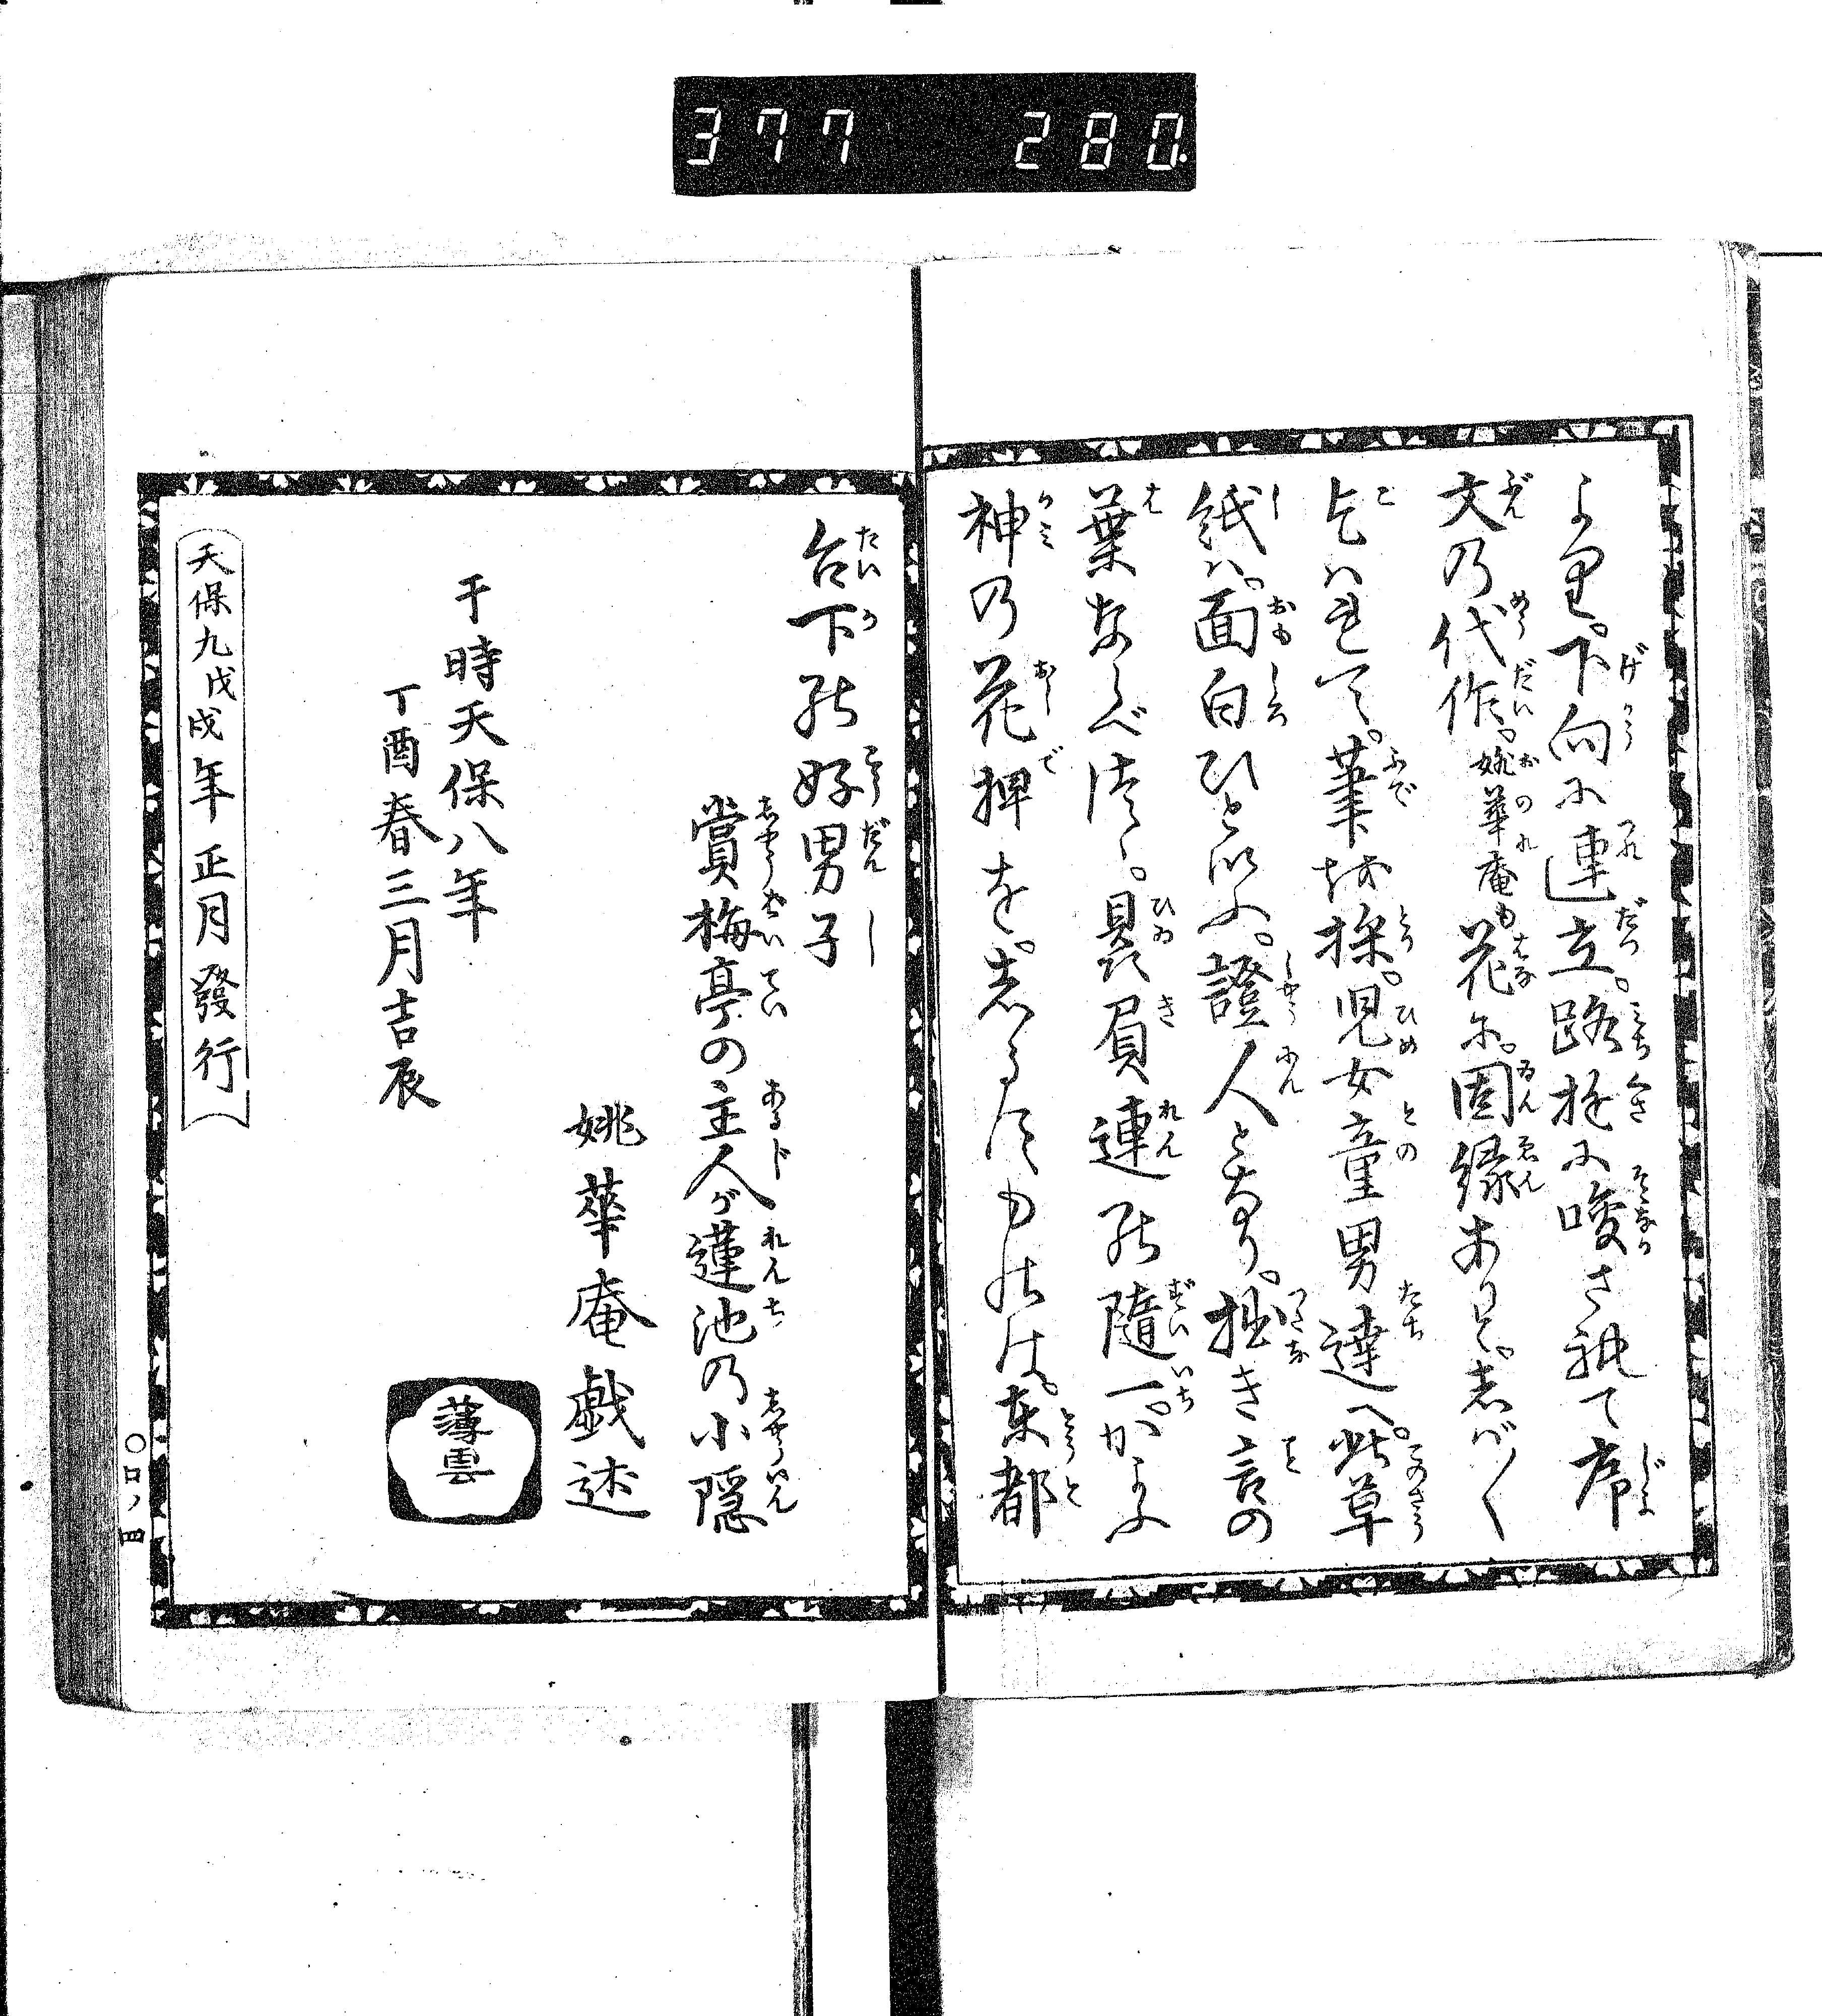 377 280.
より。下向に連立。路姙に唆されて序
文の代作。姚華庵も花に。因縁ありと。しば〳〵
乞はれて。筆を採。児女童男達へ。此草
紙は。面白ひと以ふ。證人となり。拙き言の
葉ならべ侍る。贔屓連の随一。かよふ
神の花押を。しるす物は。東都
台下の好男子
賞梅亭の主人が蓮池の小隠
姚華庵戯述
薄雲
于時天保八年
丁酉春三月吉辰
天保九戊戌年正月發行
〇口ノ四